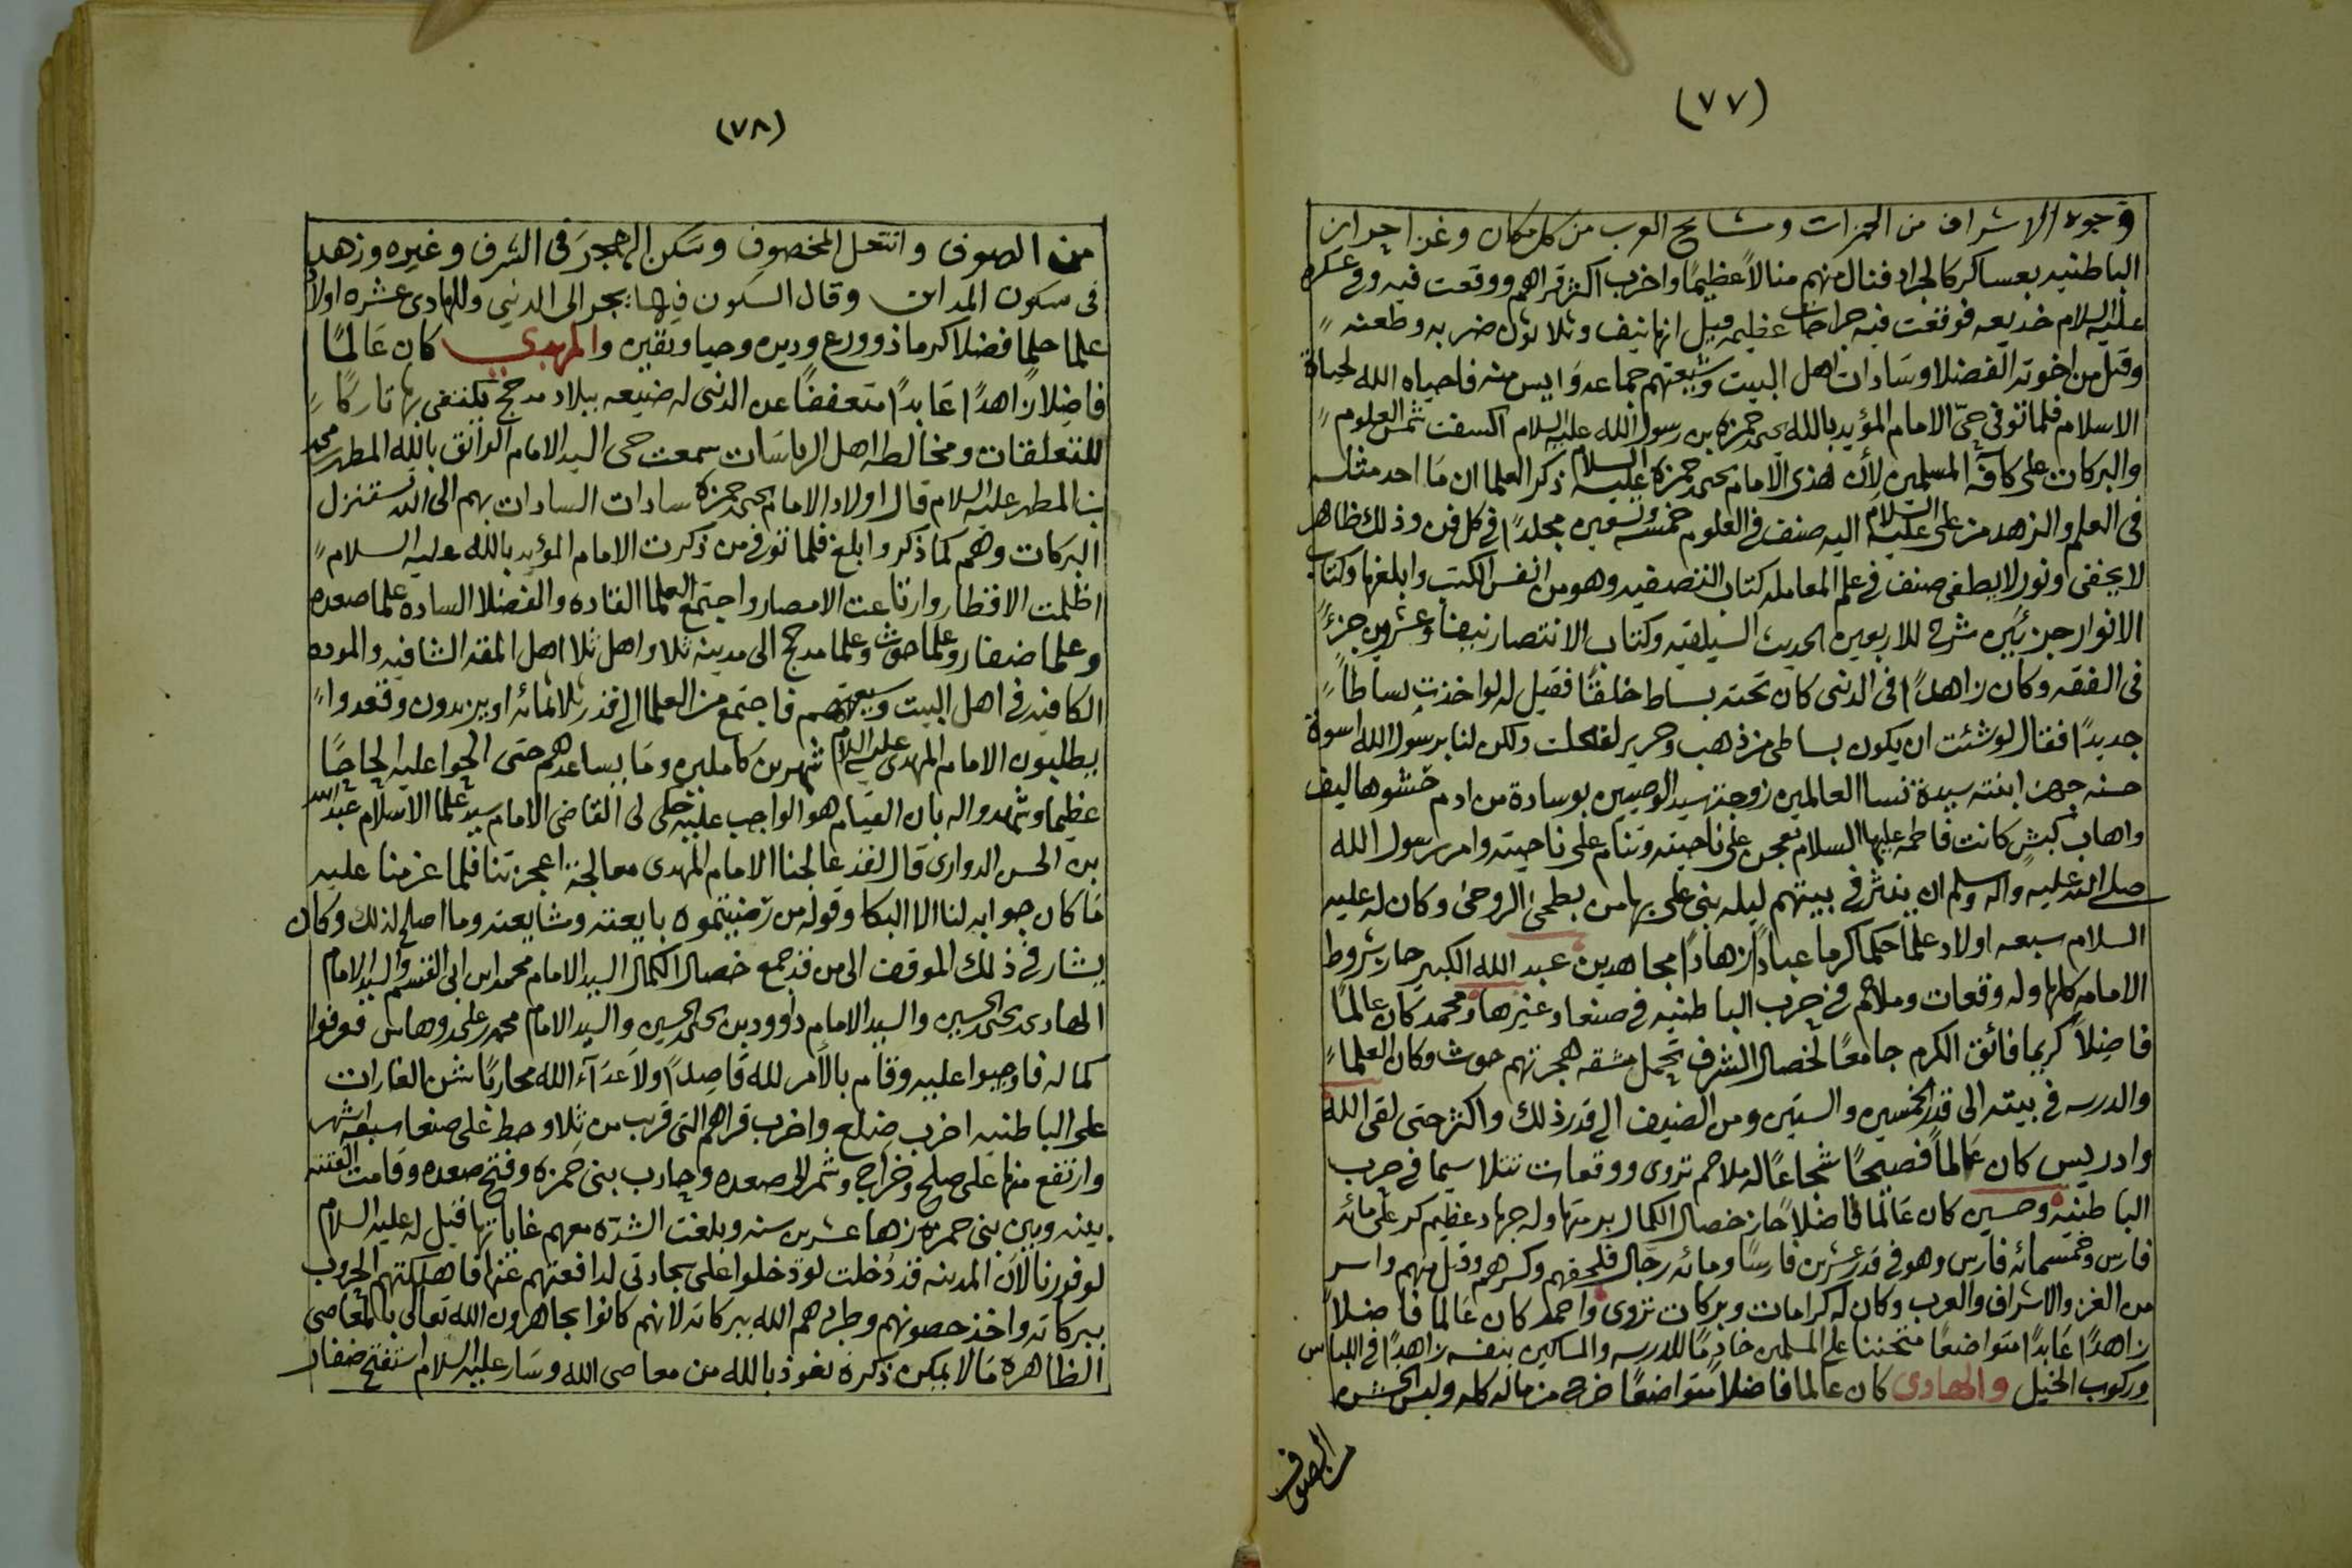 (٧٧)
وجوه الاشراف من الحمزات ومشايخ العرب من كل مكان وغزا احراز
الباطنيه بعساكر كالجراد فنال منهم منالاً عظيمًا واخرب اكثر قراهم ووقعت فيه وفي عسكره
عليه السلام خديعه فوقعت فيه جراحات عظيمه قيل انها نيف وثلاثون ضربه وطعنه
وقتل من اخوته الفضلا وسادات اهل البيت وشيعتهم جماعه وايس منه فاحياه الله لحياة
الاسلام فلما توفى حيّ الامام المؤيد بالله يحيى حمزه بن رسول الله عليه السلام اكسفت شمس العلوم
والبركات على كافة المسلمين لأن هذى الامام يحيى حمزة عليه السلام ذكر العلما ان ما احد مثله
فى العلم والزهد من على عليه السلام اليه صنف فى العلوم خمسه وتسعين مجلدًا فى كل فن وذلك ظاهر
لا يخفى ونور لا يطفى صنف فى علم المعامله كتاب التصفيه وهو من انفس الكتب وابلغها وكتاب
الانوار جزئين شرح للاربعين الحديث السيلقيه وكتاب الانتصار نيفا وعشرين جزءً
فى الفقه وكان زاهدًا فى الدنى كان تحته بساط خلقًا فقيل له لو اخذت بساطاً
جديدًا فقال لو شئت ان يكون بساطى من ذهب وحرير لفعلت ولكن لنا برسول الله اسوة
حسنه جهز ابنته سيدة نسا العالمين زوجة سيد الوصيين بوسادة من ادم حشوها ليف
واهاب كبش كانت فاطمه عليها السلام تعجن على ناحيته وتنام على ناحيته وامر رسول الله
صلى الله عليه واله وسلم ان ينثر فى بيتهم ليله بنى على بها من بطحى الروحى وكان له عليه
السلام سبعه اولاد علما حكما كرما عبادًا زهادًا مجاهدين عبد الله الكبير حاز شروط
الامامه كلها وله وقعات وملاحم فى حرب الباطنيه فى صنعا وغيرها ومحمد كان عالمًا
فاضلاً كريما فائق الكرم جامعًا لخصال الشرف تحمل مشقه هجرتهم حوث وكان العلماء
والدرسه فى بيته الى قدر الخمسين والستين ومن الضيف الى قدر ذلك واكثر حتى لقى الله
وادريس كان عَالمًا فصيحًا شجاعًا له ملاحم تروى ووقعات تتلا سيما فى حرب
الباطنيه وحسين كان عَالمًا فاضلاً حاز خصال الكمال برمتها وله جهاد عظيم كر على مائه
فارس وخمسمائه فارس وهو فى قدر عشرين فارسًا ومائه رجال فلحقهم وكسرهم وقتل منهم واسر
من الغز والاشراف والعرب وكان له كرامات وبركات تروى واحمد كان عَالما فاضلاً
زاهدًا عَابدًا متواضعًا متحننا على المسلمين خادمًا للدرسه والمساكين بنفسه زاهدًا فى اللباس
وركوب الخيل والهادى كان عالما فاضلا متواضعًا خرج من ماله كله ولبس الخشن
من الصوف
(٧٨)
من الصوف وانتعل المخصوف وسكن الهجر فى الشرف وغيره وزهد
فى سكون المدائن وقال السكون فيها يجر الى الدنيى وللهادى عشره اولاد
علما حلما فضلا كرما ذو ورع ودين وحيا ويقين والمهدي كان عَالمًا
فاضِلاً زاهدًا عَابدًا متعففًا عن الدنى له ضيعه ببلاد مدحج يكتفى بها تاركًا
للتعلقات ومخالطه اهل الرياسَات سمعت حى السيد الامام الواثق بالله المطهر محمد
بن المطهر عليه السلام قال اولاد الامام يحيى حمزة سادات السادات بهم الى الله تستنزل
البركات وهم كما ذكر وابلغ فلما توفى من ذكرت الامام المؤيد بالله عليه السلام
اظلمت الاقطار وارتاعت الامصار واجتمع العلما القاده والفضلا الساده علما صعده
وعلما ضفار وعلما حوث وعلما مدحج الى مدينه ثلا واهل ثلا اهل الفقه الشافيه والموده
الكافيه فى اهل البيت وشيعتهم فاجتمع من العلما الى قدر ثلاثمائه او يزيدون وقعدوا
يطلبون الامام المهدى عليه السلام شهرين كاملين وما يساعدهم حتى الحوا عليه الحاحًا
عظيما وشهدوا له بان القيام هو الواجب عليه حكى لى القاضى الامام سيد علما الاسلام عبدالله
بن الحسن الدوارى قال لقد عالجنا الامام المهدى معالجة اعجزتنا فلما عزمنا عليه
مَا كان جوابه لنا الا البكا وقوله من رضيتموه بايعته وشايعته وما اصلح لذلك وكان
يشار فى ذلك الموقف الى من قد جمع خصال الكمال السيد الامام محمد ابن ابى القسم والسيد الامام
الهادى يحيى الحسين والسيد الامام داوود بن يحيى الحسين والسيد الامام محمد على وهاس فعرفوا
كماله فاوجبوا عليه وقام بالأمر لله قاصدًا ولاعدآء الله محاربًا شن الغارات
على الباطنيه اخرب ضلع واخرب قراهم التى قرب من ثلا وحط على صنعا سبعه اشهر
وارتفع منها على صلح وخراج وشمر الى صعده وحارب بنى حمزه وفتح صعده وقامت الفتنه
بينه وبين بنى حمزه زها عشرين سنه وبلغت الشدة معهم غاياتها قيل له عليه السلام
لو فورنا لأن المدينه قد دُخلت لو دَخلوا على سجادتى لدافعتهم عنها فاهلكتهم الحروب
ببركاته واخذ حصونهم وطردهم الله ببركاته لانهم كانوا يجاهرون الله تعالى بالمعاصى
الظاهرة مَا لا يمكن ذكره نعوذ بالله من معاصى الله وسَار عليه السلام استفتح ضفار